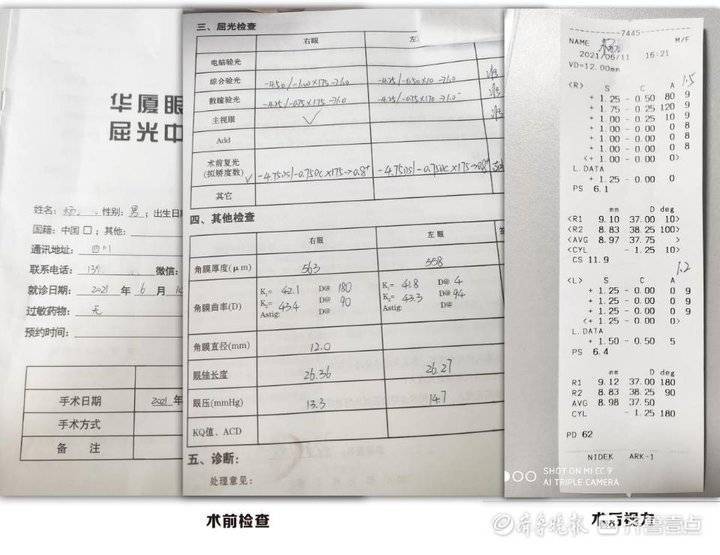 华厦眼
屈光中
姓名: 性别: 男 ; 出生日期
国籍: 中国☐ ; 其他:
通讯地址: 四川
联系电话: 13 微信:
就诊日期: 2021 年 6 月 14
过敏药物: 无
预约时间:
手术日期 2021年
手术方式
备 注
三、屈光检查
右眼 左
电脑验光
综合验光 -4.50/-1.00×175→1.0
散瞳验光
主视眼 ✓
Add
术前复光
(拟矫度数) -4.75DS/-0.75DC×175→0.8⁺ -4.75DS/-0.75DC×175→0.8⁺
其它
四、其他检查
右眼 左眼
角膜厚度(μm) 563 558
角膜曲率(D)
K₁= 42.1 D@ 180 K₁= 41.8 D@ 4
K₂= 43.4 D@ 90 K₂= 43.3 D@ 94
Astig: D@ Astig: D@
角膜直径(mm) 12.0
眼轴长度 26.36 26.27
眼压(mmHg) 13.3 14.7
KQ值、ACD
五、诊断:
处理意见:
-7445-
NAME M/F
2021/06/11 16:21
VD=12.00mm
1.5
<R> S C A
+ 1.25 - 0.50 80 9
+ 1.75 - 0.25 120 9
+ 1.00 - 0.25 10 9
+ 1.00 - 0.00 0 8
+ 1.00 - 0.00 0 8
+ 1.00 - 0.00 0 8
<+ 1.00 - 0.00 0>
L.DATA
+ 1.25 - 0.00 0
PS 6.1
mm D deg
<R1 9.10 37.00 10>
<R2 8.83 38.25 100>
<AVG 8.97 37.75 >
<CYL - 1.25 10>
CS 11.9
1.2
<L> S C A
+ 1.25 - 0.00 0 9
+ 1.25 - 0.00 0 9
+ 1.25 - 0.00 0 9
<+ 1.25 - 0.00 0>
L.DATA
+ 1.50 - 0.50 5
PS 6.4
mm D deg
R1 9.12 37.00 180
R2 8.83 38.25 90
AVG 8.98 37.50
CYL - 1.25 180
PD 62
NIDEK ARK-1
SHOT ON MI CC 9
AI TRIPLE CAMERA
术前检查
术后视力
齐鲁晚报 齐鲁壹点